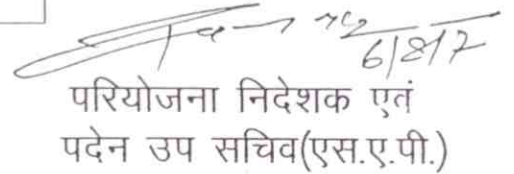 6/8/17
परियोजना निदेशक एवं
पदेन उप सचिव(एस.ए.पी.)